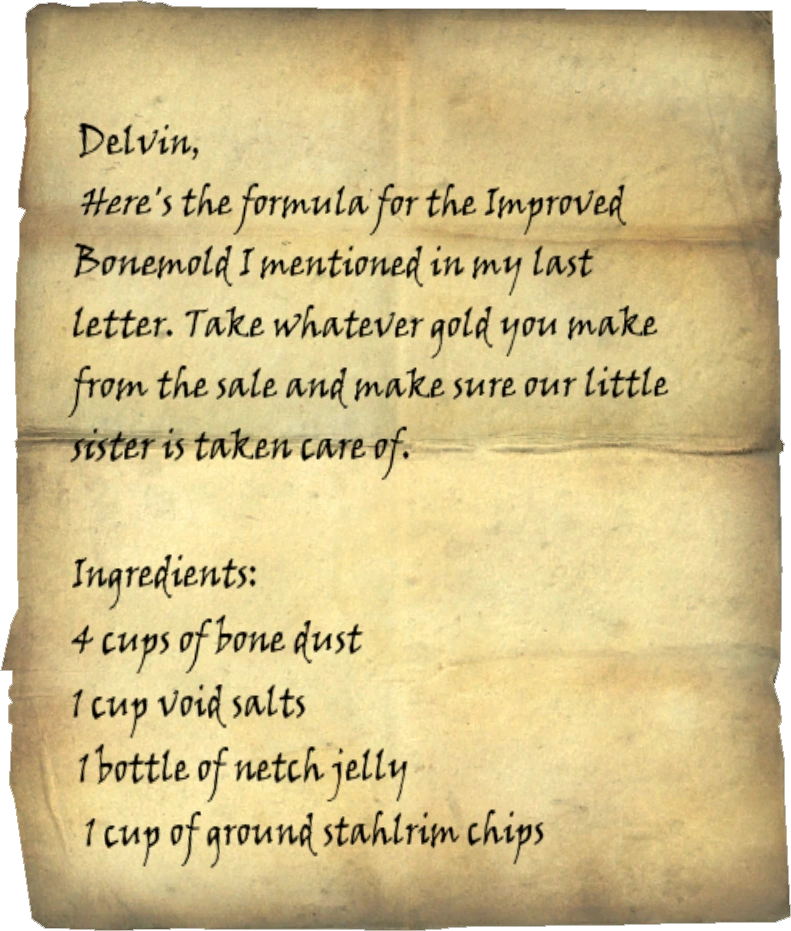 Delvin,
Here's the formula for the Improved
Bonemold I mentioned in my last
letter. Take whatever gold you make
from the sale and make sure our little
sister is taken care of.
Ingredients:
4 cups of bone dust
1 cup void salts
1 bottle of netch jelly
1 cup of ground stahlrim chips